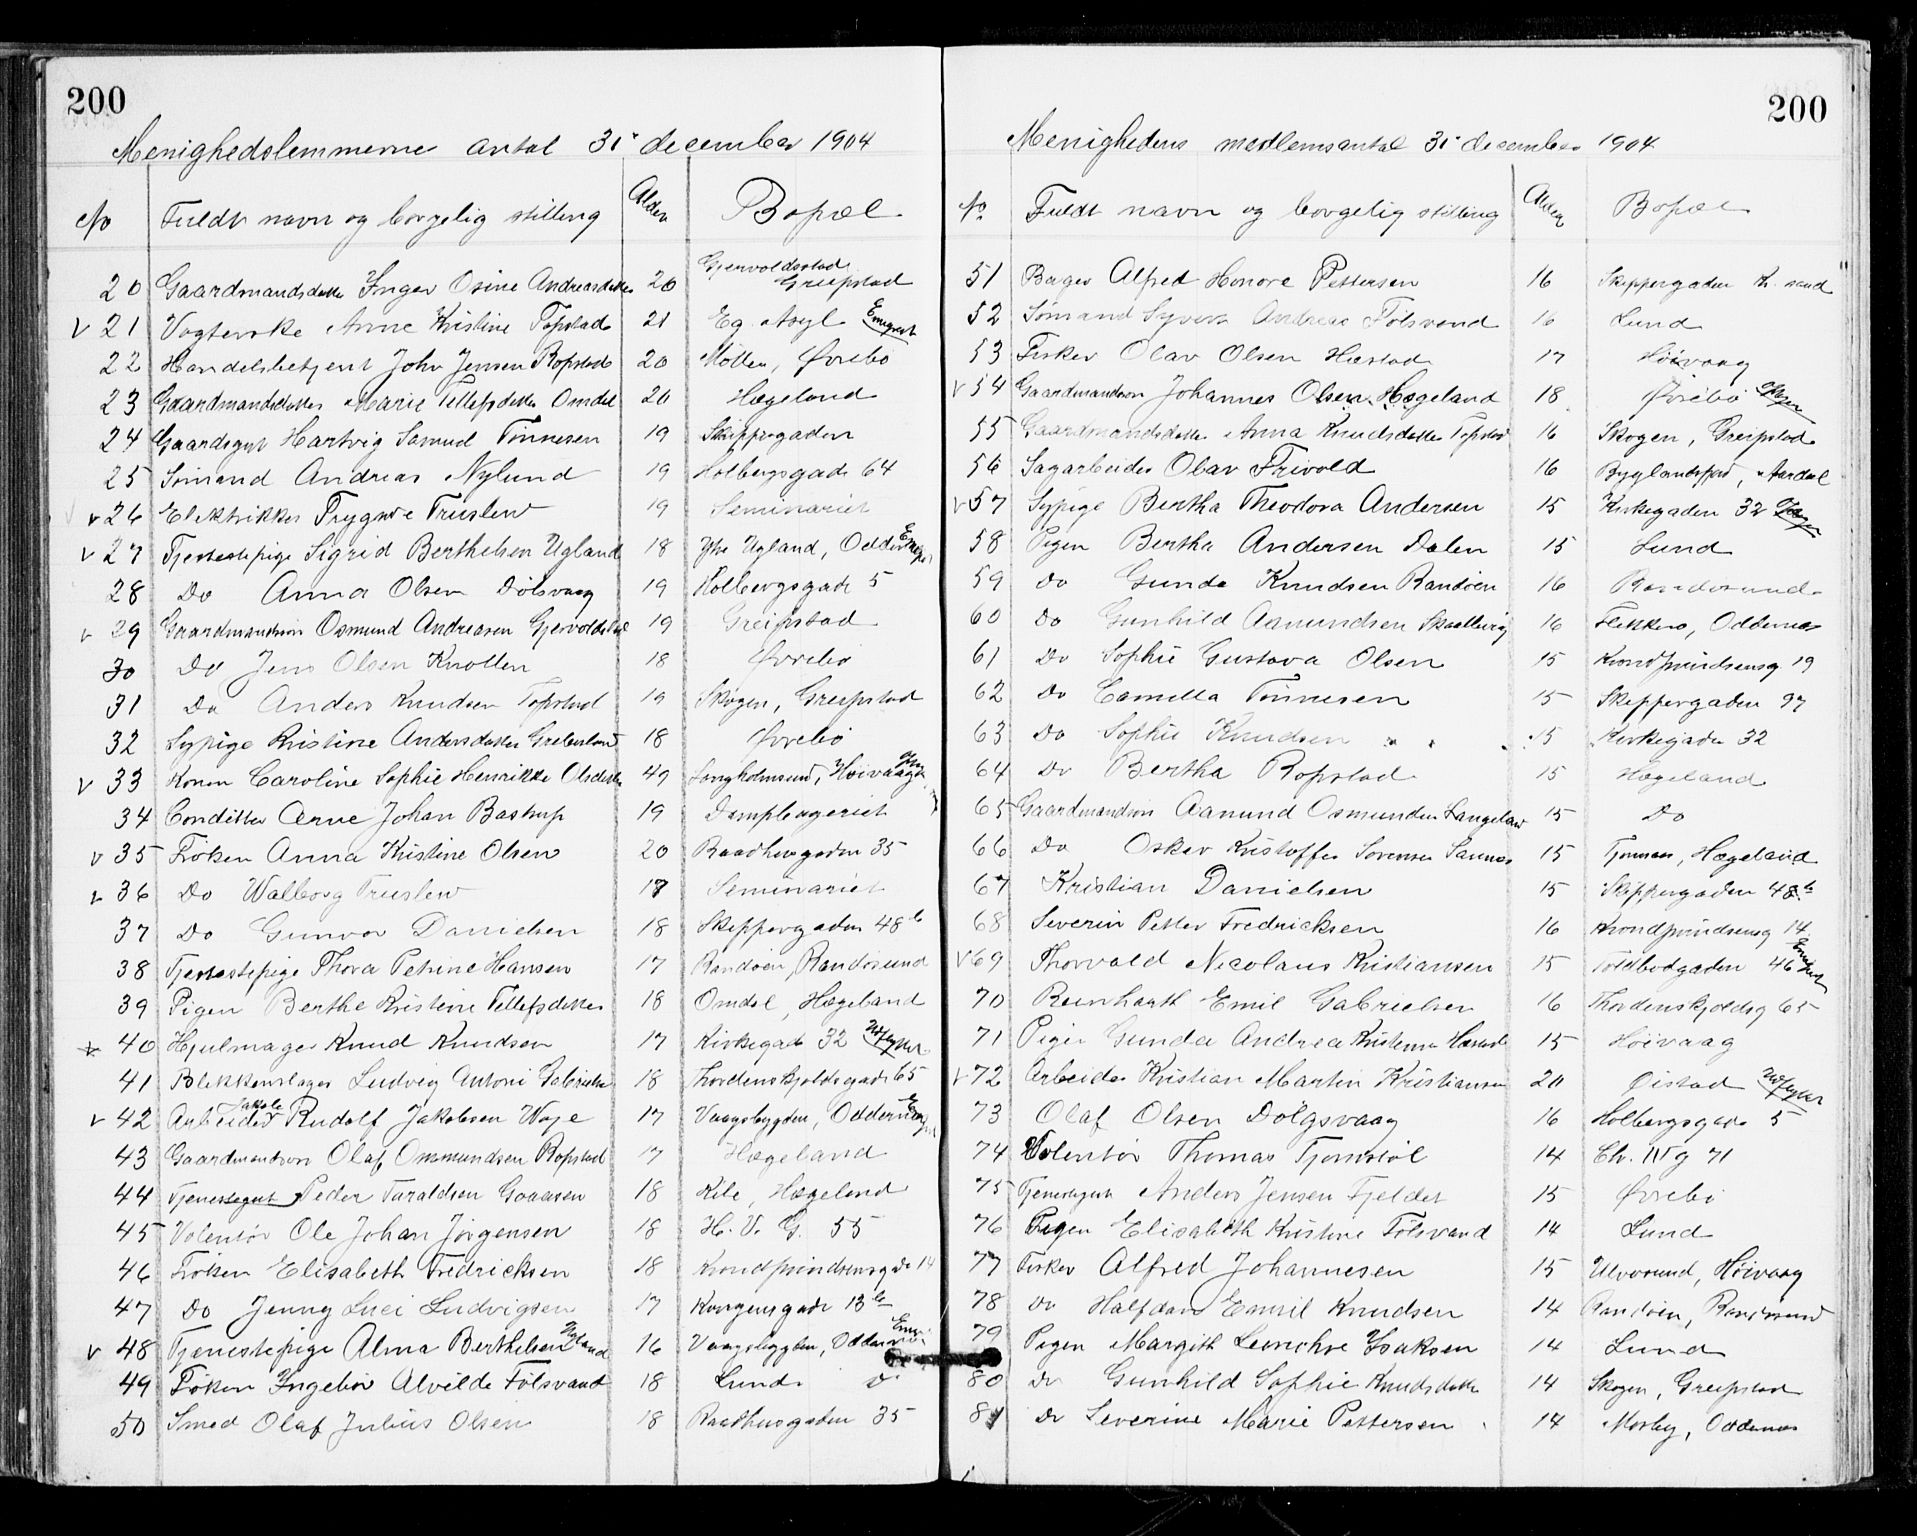 200
Menighedslemmerne antal 31' december 1904
No Fuldt navn og borgelig stilling Alder Bopæl
20 Gaardmandsdatter Inger Osine Andreasdatter 20 Gjervoldstad Greipstad
v 21 Vogterske Anne Kristine Topstad 21 Eg. Asyl Emigreret
22 Handelsbetjent John Jensen Ropstad 20 Møllen, Øvrebø
23 Gaardmandsdatter Marie Tellefsdatter Omdal 20 Hægeland
24 Gaardsgut Hartvig Samud Tønnesen 19 Skippergaden
25 Sømand Andreas Nylund 19 Holbergsgade 64
v 26 Elektrikker Trygve Truslew 19 Seminariet
v 27 Tjenestepige Sigrid Berthelsen Ugland 18 Ytre Ugland, Oddernes
28 Do Anna Olsen Dølsvaag 19 Holbergsgade 5
v 29 Gaardmandssøn Osmund Andreasen Gjervoldstad 19 Greipstad
30 Do Jens Olsen Knollen 18 Øvrebø
31 Do Anders Knudsen Topstad 19 Skogen, Greipstad
32 Sypige Kristine Andersdatter Grebestad 18 Øvrebø
v 33 Konen Caroline Sophie Henrikke Olsdatter 49 Langholmsund, Høivaag
34 Conditter Arne Johan Bastrup 19 Dampbageriet
v 35 Frøken Anna Kristine Olsen 20 Raadhusgaden 35
v 36 Do Walborg Truslew 18 Seminariet
37 Do Gunvor Danielsen 18 Skippergaden 48 b
38 Tjenestepige Thora Petrine Hansen 17 Randøen, Randøsund
39 Pigen Berthe Kristine Tellefsdatter 18 Omdal, Hægeland
v 40 Hjulmager Knud Knudsen 17 Kirkegade 32 Udflyttet
41 Blikkenslager Ludvig Antoni Gabrielsen 18 Thordenskjoldsgade 65
v 42 Arbeider Jakob Rudolf Jakobsen Waje 17 Vaagsbygden, Oddernes
43 Gaardmandssøn Olaf Ommundsen Ropstad 17 Hægeland
44 Tjenestegut Peder Taraldsen Goaasen 18 Kile, Hægeland
45 Volentør Ole Johan Jørgensen 18 H. V. G. 55
46 Frøken Elisabeth Fredricksen 18 Krondprindsensgade 14
47 Do Jenny Luci Ludvigsen 17 Kongensgade 13 b
v 48 Tjenestepige Alma Berthelsen Ugland 16 Vaagsbygden, Oddernes
49 Frøken Ingebor Alvilde Følsvand 18 Lund do
50 Smed Olaf Julius Olsen 18 Raadhusgaden 35
200
Menighedens medlemsantal 31' december 1904
No Fuldt navn og borgelig stilling Alder Bopæl
51 Bager Alfred Honore Pettersen 16 Skippergaden Kr. sand
52 Sømand Syvert Andreas Følsvand 16 Lund
53 Fisker Olav Olsen Hæstad 17 Høivaag
v 54 Gaardmandssøn Johannes Olsen Hægeland 18 Øvrebø
55 Gaardmandsdatter Anna Knudsdatter Topstad 16 Skogen, Greipstad
56 Sagarbeider Olav Frivold 16 Byglandsfjord, Aardal
v 57 Sypige Bertha Theodora Andersen 15 Kirkegaden 32
58 Pigen Bertha Andersen Dalen 15 Lund
59 Do Gunda Knudsen Randøen 16 Randøsund
60 Do Gunhild Aanundsen Skaallevig 16 Flekkerø, Oddernes
61 Do Sophie Gustava Olsen 15 Krondprindsensg 19
62 Do Camilla Tønnesen 15 Skippergaden 97
63 Do Sophie Knudsen 15 Kirkegaden 32
64 Do Bertha Ropstad 15 Hægeland
65 Gaardmandssøn Aanund Osmundsen Langeland 15 Do
66 Do Oskar Kristoffer Sørensen Sannes 15 Tjomsaas, Hægeland
67 Kristian Danielsen 15 Skippergaden 48 b
68 Severin Petter Fredricksen 16 Krondprindsensg 14
v 69 Thorvald Nicolaus Kristiansen 15 Toldbodgaden 46
70 Reinharth Emil Gabrielsen 16 Thordenskjoldsg 65
71 Pigen Gunda Andrea Kristense Hæstad 15 Høivaag
v 72 Arbeider Kristian Martin Kristiansen 20 Øistad Udflyttet
73 Olaf Olsen Dølgsvaag 16 Holbergsgade 5
74 Volentør Thomas Tjomstøl 14 Chr. IV g 71
75 Tjenestegut Anders Jensen Fjeldet 15 Øvrebø
76 Pigen Elisabeth Kristine Følsvand 14 Lund
77 Fisker Alfred Johannesen 15 Ulvøsund, Høivaag
78 Do Halfdan Emil Knudsen 14 Randøen, Randøsund
79 Pigen Margith Isaksen 14 Lund
80 Do Gunhild Sophie Knudsdatter 14 Skogen, Greipstad
81 Do Severine Marie Pettersen 14 Mosby, Oddernes